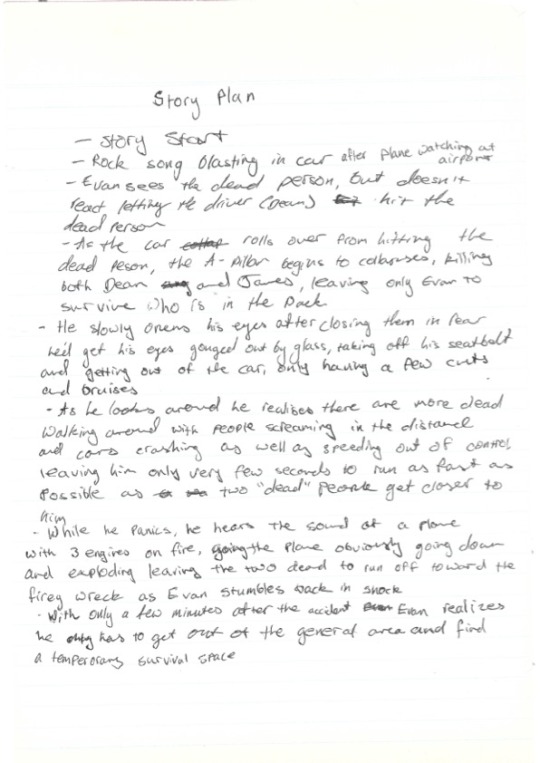 Story Plan
- Story Start
- Rock song blasting in car after plane watching at
airport
- Evan sees the dead person, but doesn't
react letting the driver (Dean) hit the
dead person
- As the car rolls over from hitting the
dead peson, the A-Pillar begins to collapses, killing
both Dean and James, leaving only Evan to
survive who is in the back
- He slowly opens his eyes after closing them in fear
he'd get his eyes gouged out by glass, taking off his seatbelt
and getting out of the car, only having a few cuts
and bruises
- As he looks around he realises there are more dead
walking around with people screaming in the distance
and cars crashing as well as speeding out of control
leaving him only very few seconds to run as fast as
possible as two "dead" people get closer to
him
- While he panics, he hears the sound of a plane
with 3 engines on fire, the plane obviously going down
and exploding leaving the two dead to run off toward the
firey wreck as Evan stumbles back in shock
- With only a few minutes after the accident Evan realizes
he has to get out of the general area and find
a temporary survival space